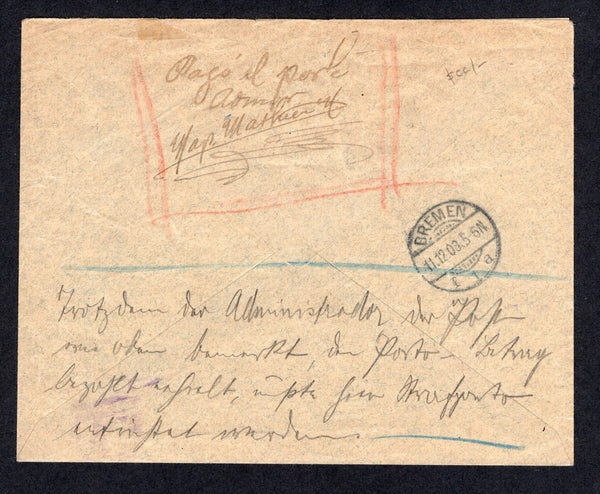 Pagó el porte
Admor
500/-
BREMEN
11.12.08.5-6N
1 a
Trotzdem der Administrador der Post
wie oben bemerkt, den Porto-Betrag
bezahlt erhielt, mußte hier Strafporto
entrichtet werden.